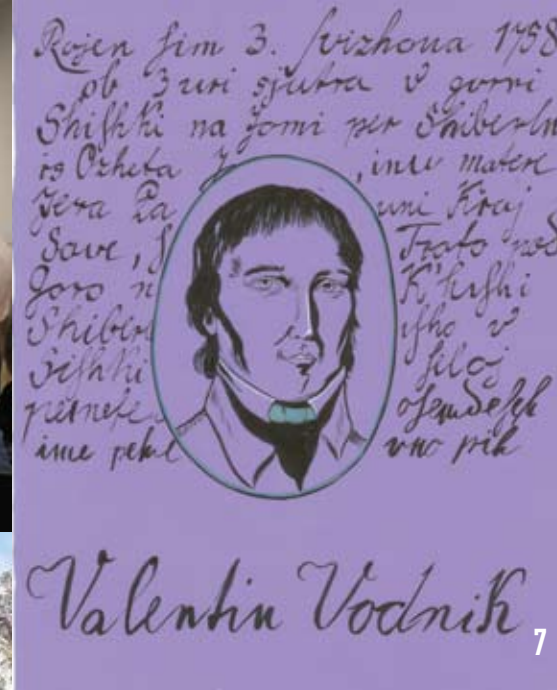 Rojen sim 3. svizhona 1758
ob 3 uri sjutra v gorni
Shishki na Jomi per Shiberln
is Ozheta , inu matere
Jera Pa uni Kraj
Save, Trato pod
Goro n K'hishi
Shibert isho v
Sishki
osemdeset
ime vno pil
Valentin Vodnik
7